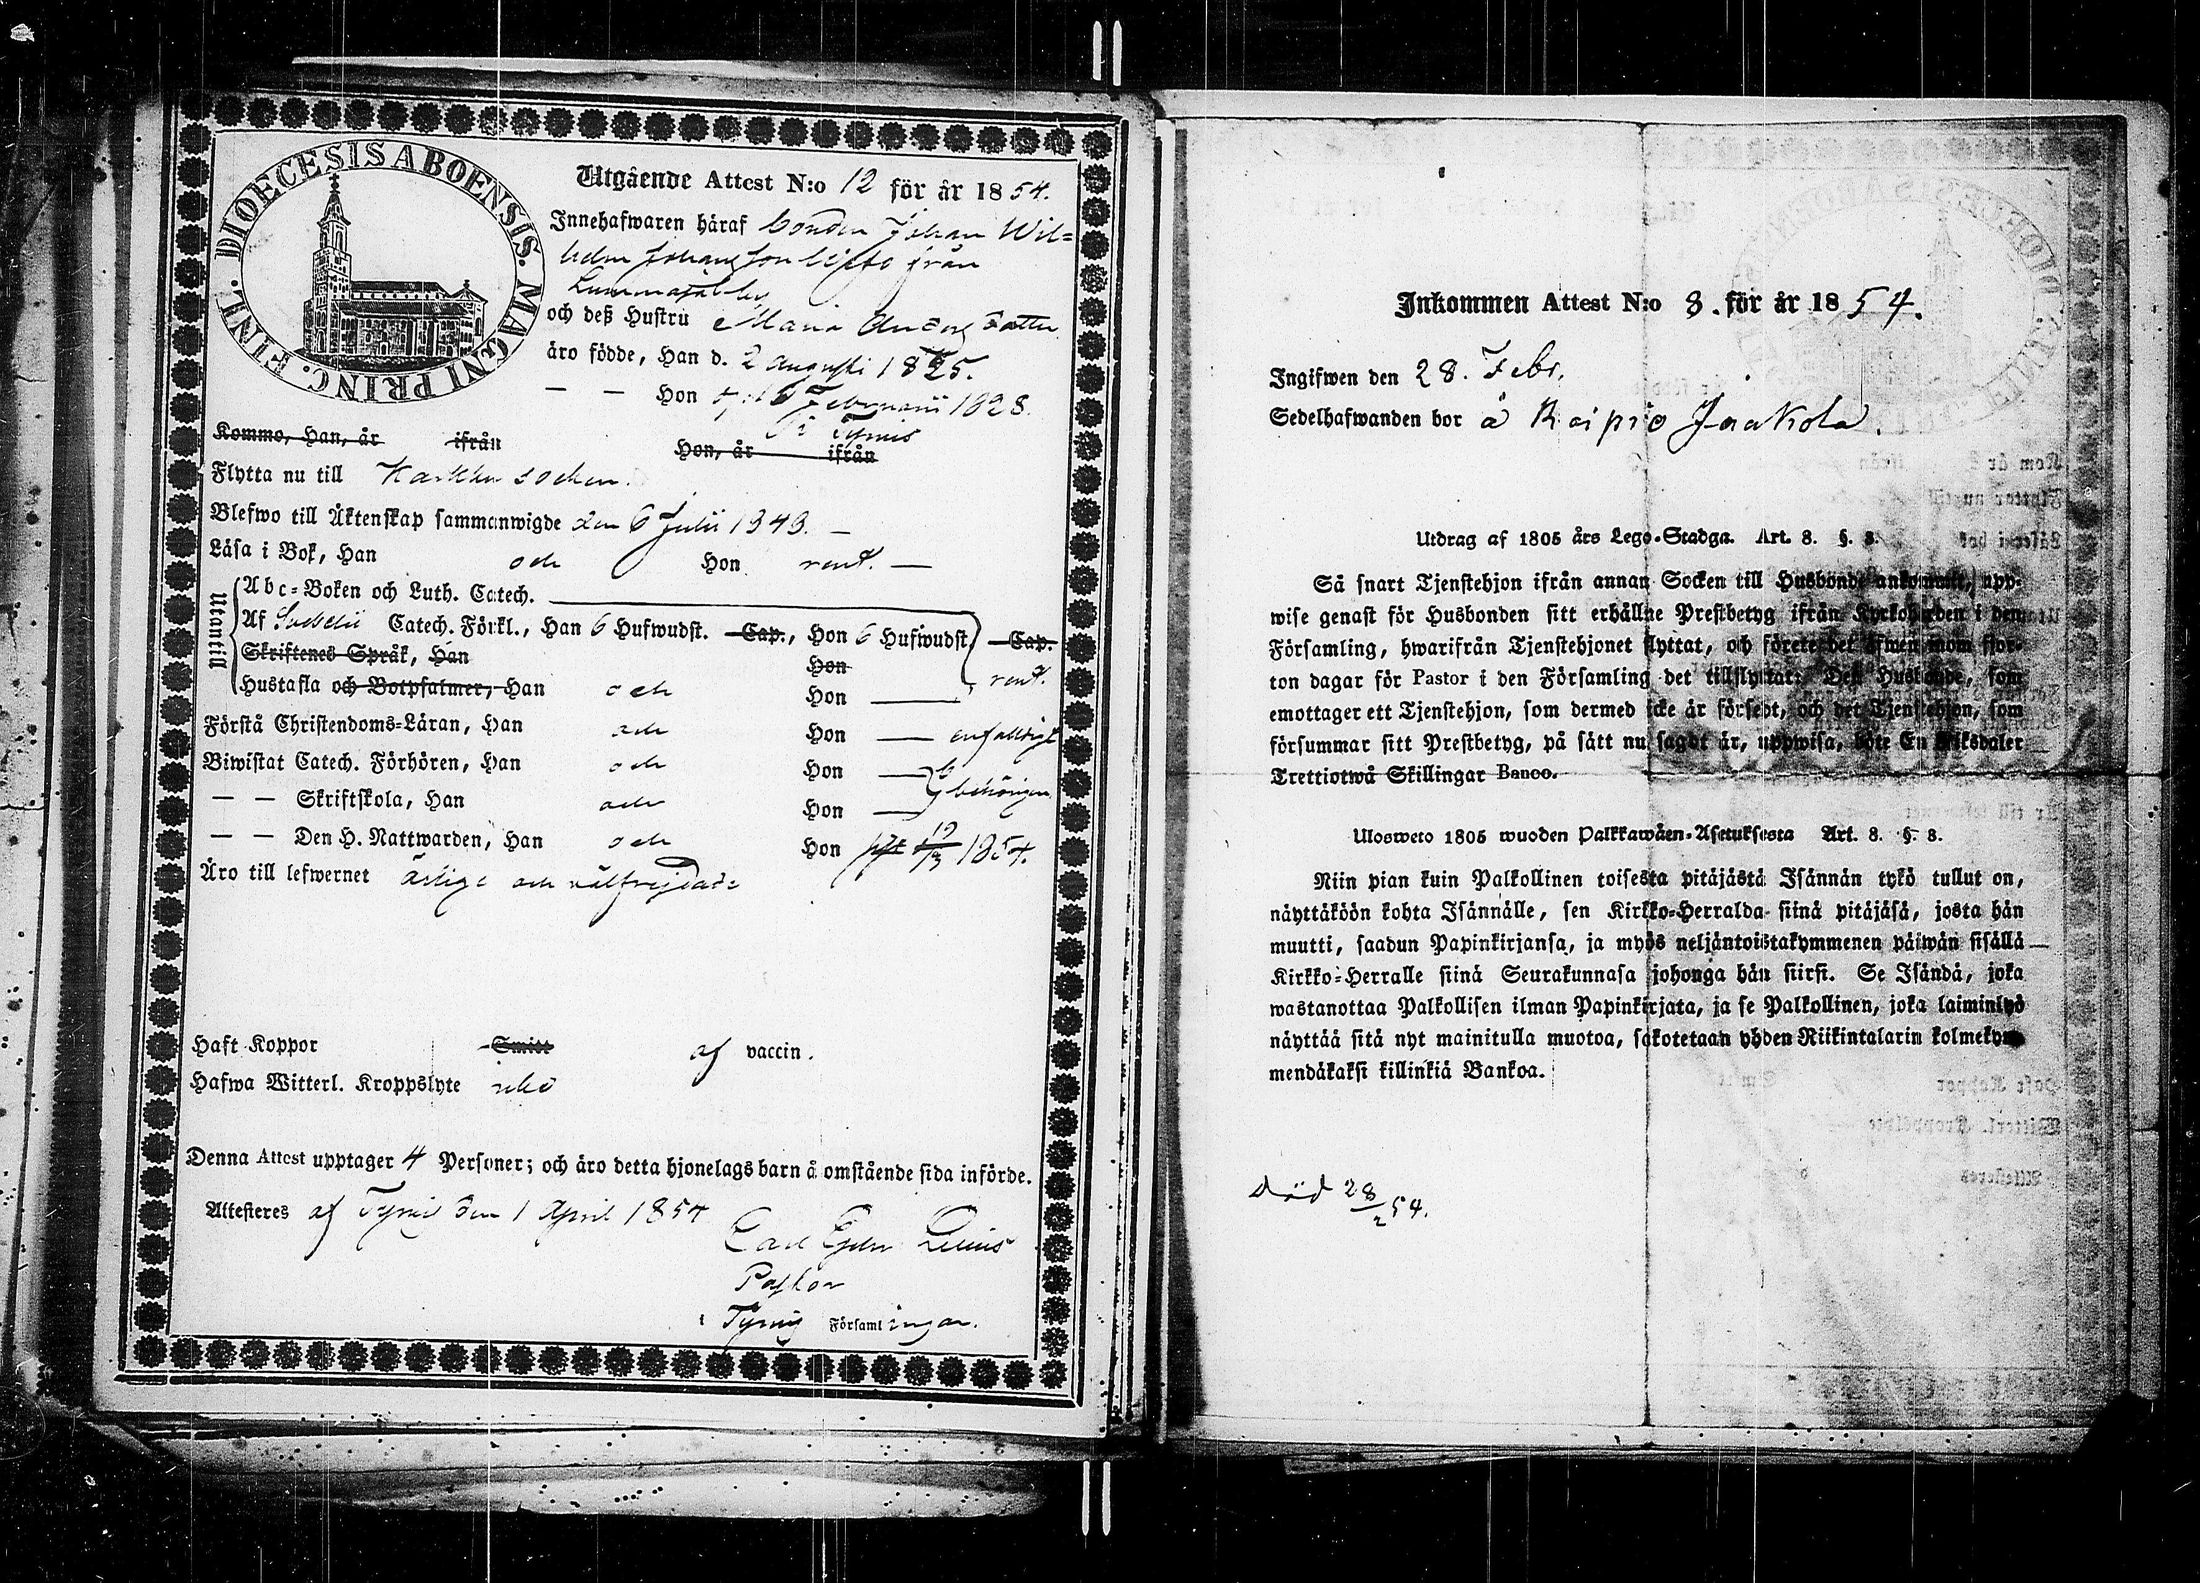 DIOECESIS ABOENSIS. MAGNI PRINC. FINL.
Utgående Attest N:o 12 för år 1854.
Innehafwaren häraf bonden Johan Wil=
helm Johansson från
och deß Hustru Maria Anders dotter
äro födde, Han d. 2 Augusti 1825.
— — Hon Februarii 1828.
i Tyrvis
Kommo, Han, år ifrån Hon, år ifrån
Flytta nu till Karkku socken.
Blefwo till Äktenskap sammanwigde den 6 Julii 1849. —
Läsa i Bok, Han och Hon rent. —
Utantill
Abc=Boken och Luth. Catech.
Af Svebelii Catech. Förkl., Han 6 Hufwudst. Cap., Hon 6 Hufwudst. Cap.
Skriftenes Språk, Han Hon
Hustafla och Botpsalmer, Han och Hon — rent.
Förstå Christendoms=Läran, Han och Hon — enfaldigt
Biwistat Catech. Förhören, Han och Hon —
— — Skriftskola, Han och Hon — behörigen
— — Den H. Nattwarden, Han och Hon 12/3 1854.
Äro till lefwernet ärlige och välfrejdade
Haft Koppor Smitt af vaccin.
Hafwa Witterl. Kroppslyte icke
Denna Attest upptager 4 Personer; och äro detta hjonelags barn å omstående sida införde.
Attesteres af Tyrvis den 1 April 1854
Carl Lilius
Pastor
i Tyrvis Församlingar.
Inkommen Attest N:o 8. för år 1854.
Ingifwen den 28. Febr.
Sedelhafwanden bor å Raipio Jaakola.
Utdrag af 1805 års Lego-Stadga. Art. 8. §. 8.
Så snart Tjenstehjon ifrån annan Socken till Husbonde ankommit, upp-
wise genast för Husbonden sitt erhållne Prestbetyg ifrån Kyrkoherden i den
Församling, hwarifrån Tjenstehjonet flyttat, och förete det äfwen inom fjor-
ton dagar för Pastor i den Församling det tillflyttat: Den Husbonde, som
emottager ett Tjenstehjon, som dermed icke är försedt, och det Tjenstehjon, som
försummar sitt Prestbetyg, på sätt nu sagdt är, uppwisa, böte En Riksdaler
Trettiotwå Skillingar Banco.
Ulosweto 1805 wuoden Palkkawäen-Asetuksesta Art. 8. §. 8.
Niin pian kuin Palkollinen toisesta pitäjästä Isännän tykö tullut on,
näyttäköön kohta Isännälle, sen Kirkko=Herralda siinä pitäjäsä, josta hän
muutti, saadun Papinkirjansa, ja myös neljäntoistakymmenen päiwän sisällä
Kirkko=Herralle siinä Seurakunnasa johonga hän siirsi. Se Isändä, joka
wastanottaa Palkollisen ilman Papinkirjata, ja se Palkollinen, joka laiminlyö
näyttää sitä nyt mainitulla muotoa, sakotetaan yhden Riikintalarin kolmekym-
mendäkaksi killinkiä Bankoa.
död 28/2 54.